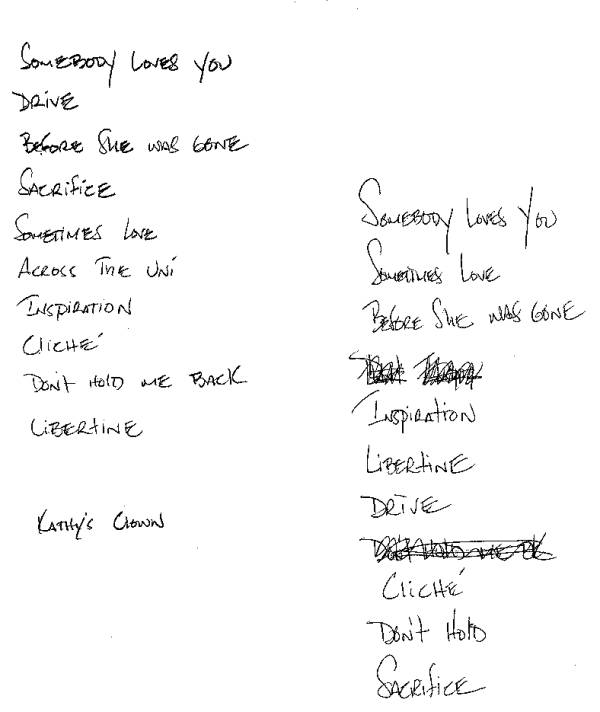 Somebody Loves You
Drive
Before She Was Gone
Sacrifice
Sometimes Love
Across The Uni
Inspiration
Cliché
Don't Hold Me Back
Libertine
Kathy's Clown
Somebody Loves You
Sometimes Love
Before She Was Gone
Inspiration
Libertine
Drive
Don't Hold Me Bk
Cliché
Don't Hold
Sacrifice